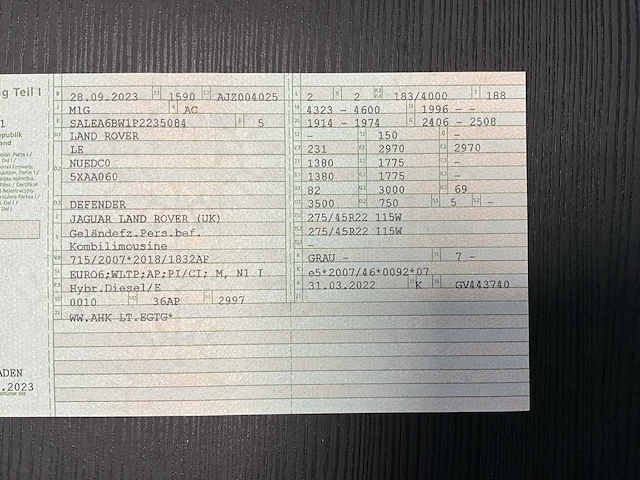 ng Teil I
28.09.2023 1590 AJZ004025
M1G AC
SALEA6BW1P2235084 5
LAND ROVER
LE
NUEDC0
5XAA060
DEFENDER
JAGUAR LAND ROVER (UK)
Geländefz.Pers.bef.
Kombilimousine
715/2007*2018/1832AP
EURO6;WLTP;AP;PI/CI; M, N1 I
Hybr.Diesel/E
0010 36AP 2997
WW.AHK LT.EGTG*
2 2 183/4000 188
4323 - 4600 1996 - -
1914 - 1974 2406 - 2508
- 150 -
231 2970 2970
1380 1775 -
1380 1775 -
82 3000 69
3500 750 5 -
275/45R22 115W
275/45R22 115W
-
GRAU - 7 -
e5*2007/46*0092*07
31.03.2022 K GV443740
ADEN
.2023